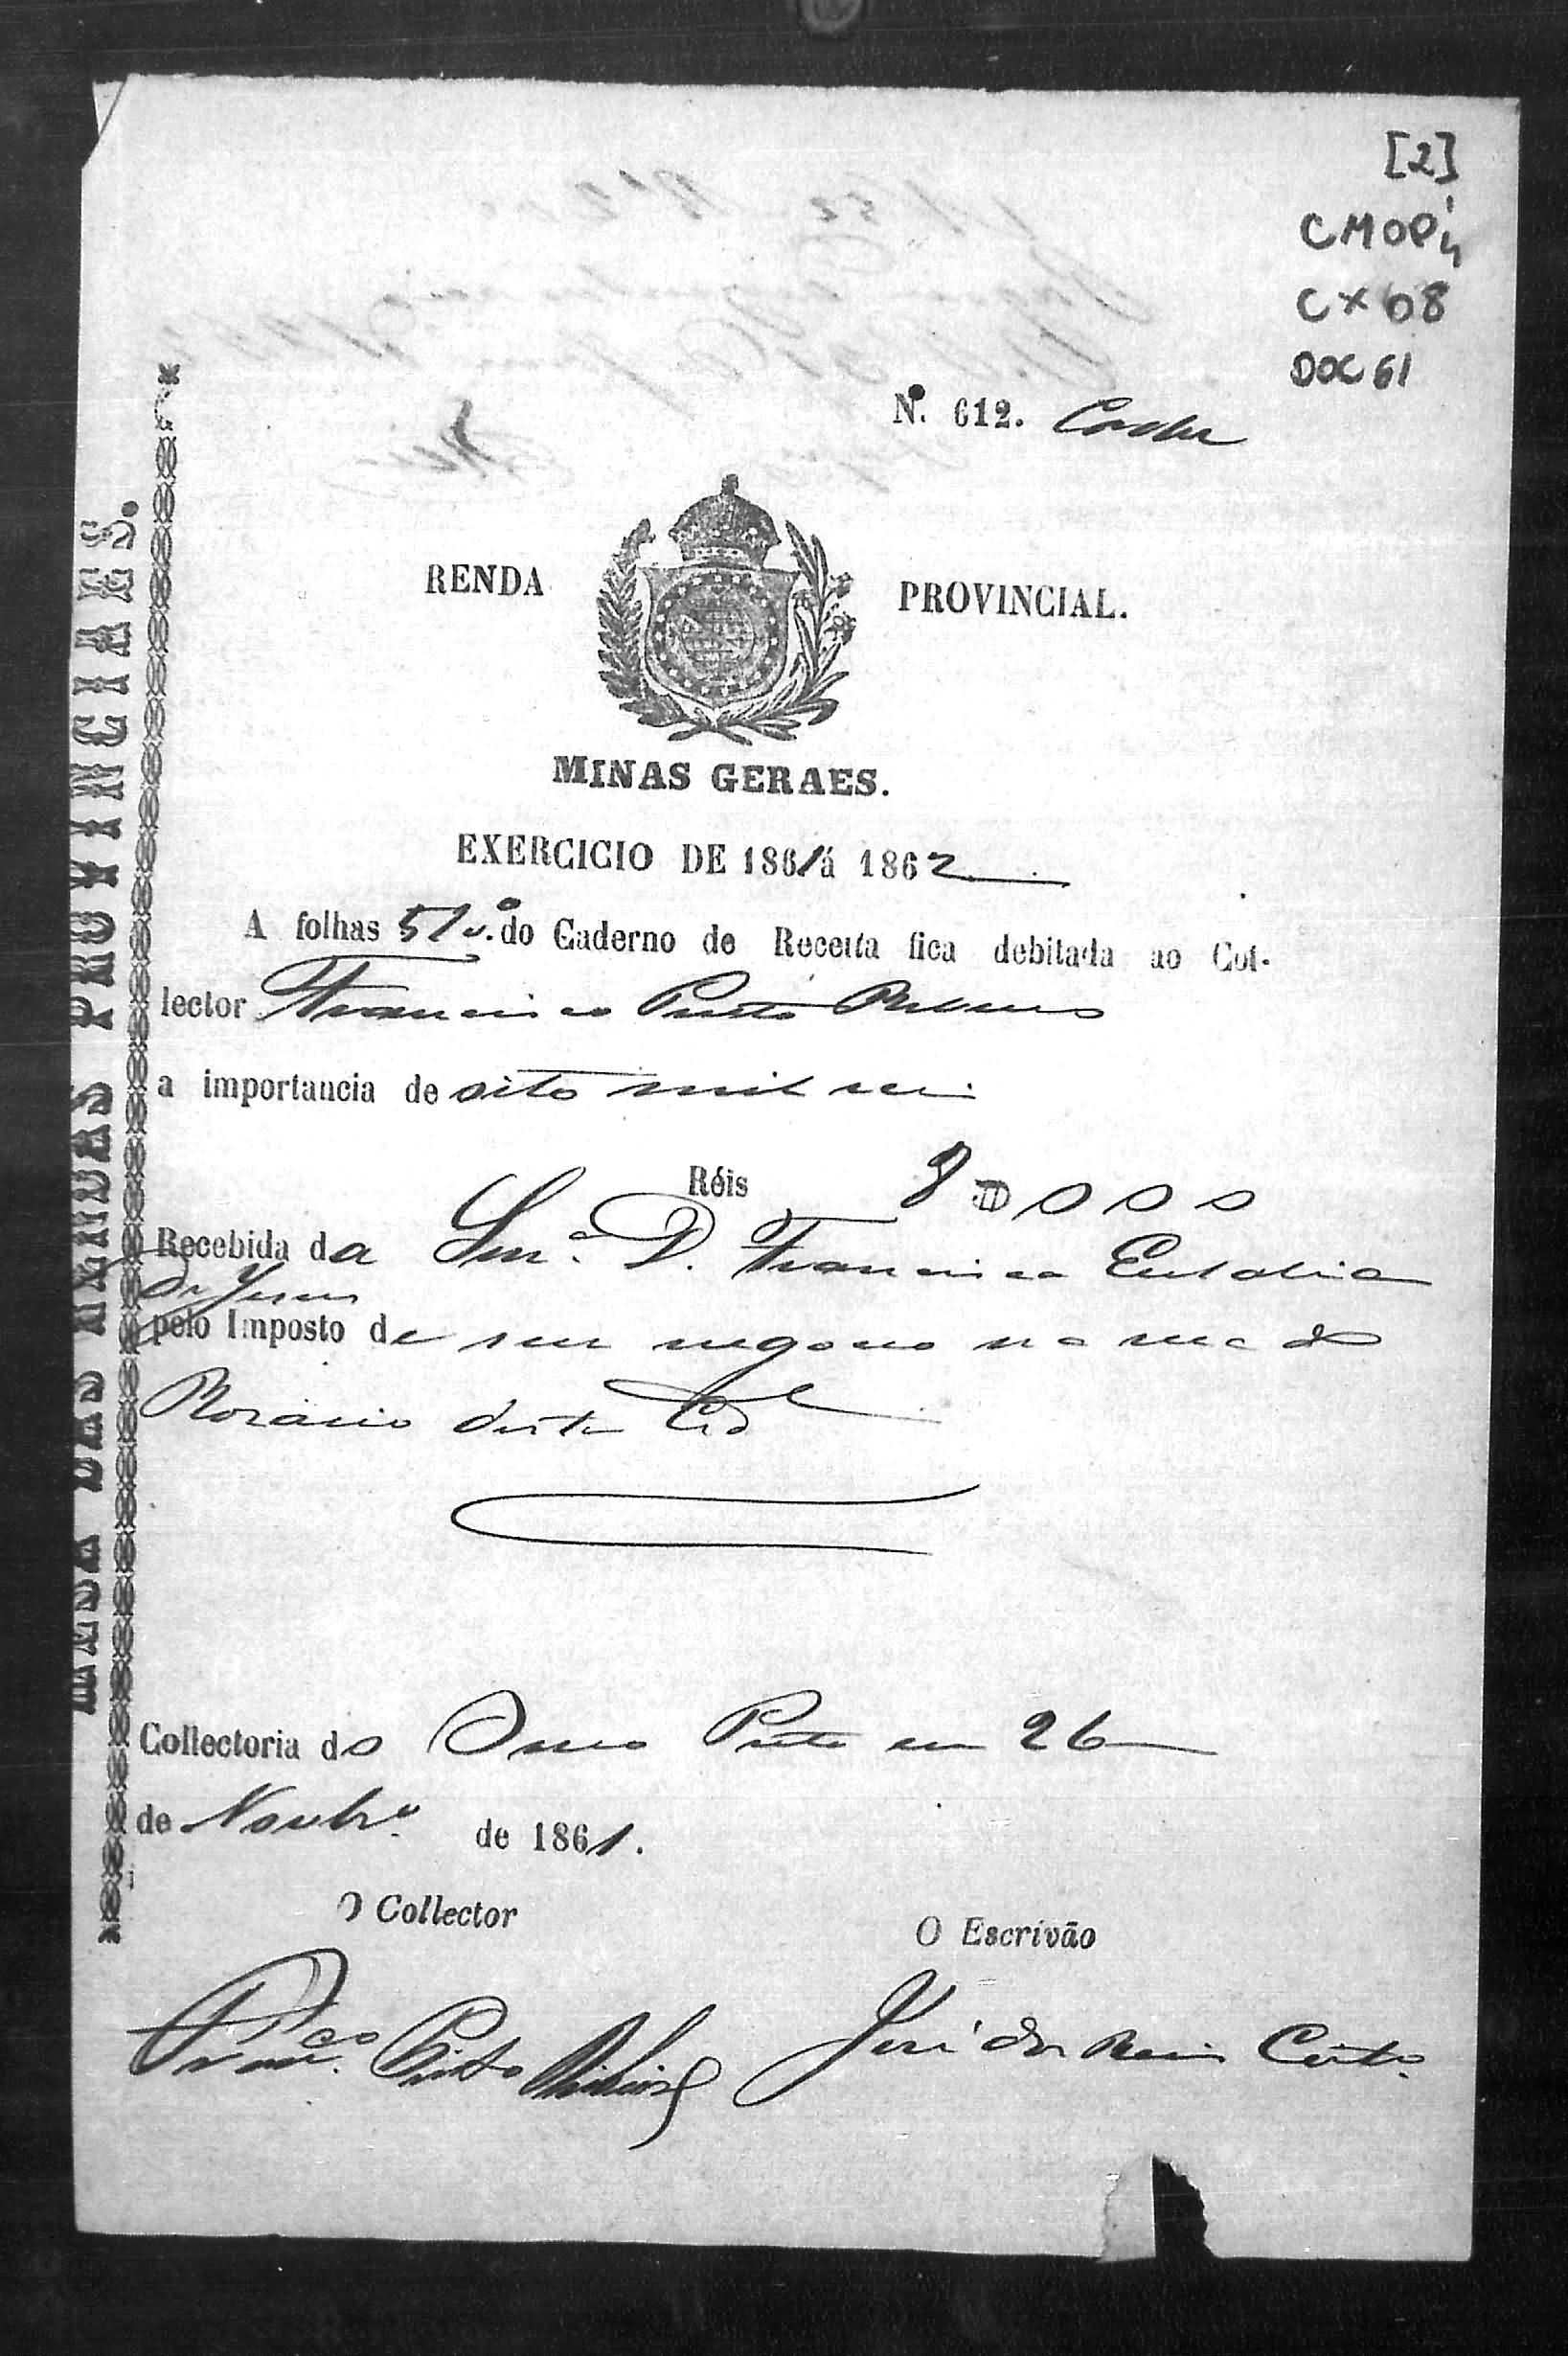 [2]
CMOP
CX 08
DOC 61
Nº. 612.
RENDA PROVINCIAL.
MINAS GERAES.
EXERCICIO DE 1861 á 1862
A folhas 51 v.º do Caderno de Receita fica debitada ao Col-
lector Francisco Pinto
a importancia de oito mil reis
Réis 8000
Recebida da Snrª. D. Francisca Eulalia
De Jesus
pelo Imposto de seu negocio na rua do
Rosario desta Cidᵉ
Collectoria do Ouro Preto em 26
de Novbrº. de 1861.
O Collector O Escrivão
Francᶜᵒ. Pinto José dos Reis
MESA DAS RENDAS PROVINCIAES.